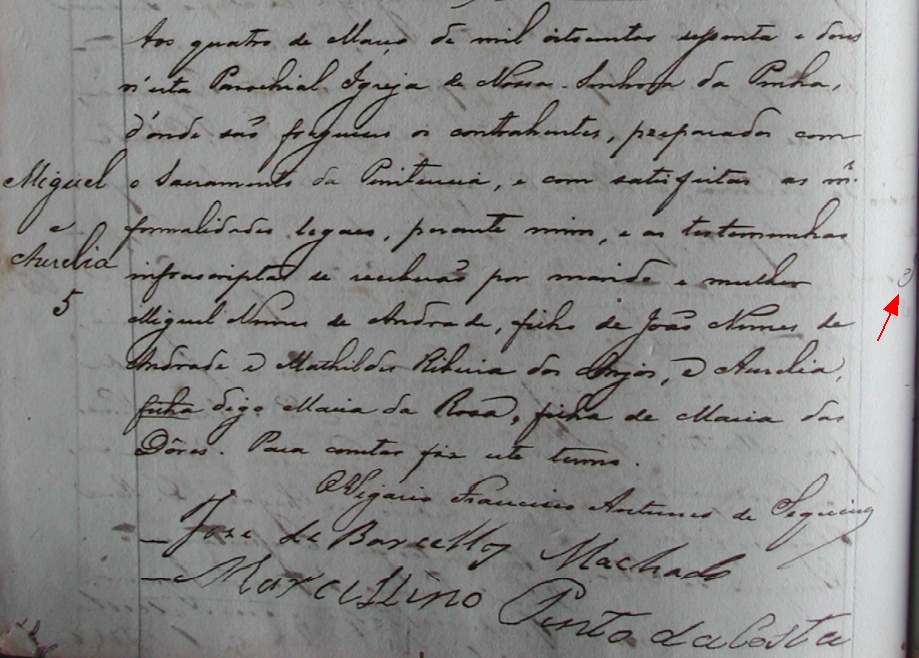 Aos quatro de Março de mil oitocentos setenta e dous
n'esta Parochial Igreja de Nossa Senhora da Penha,
d'onde são freguezes os contrahentes, preparados com
o Sacramento da Penitencia, e com satisfeitas as m.
formalidades legaes, perante mim, e as testemunhas
infrascriptas se receberão por marido e mulher
Miguel Nunes de Andrade, filho de João Nunes de
Andrade e Mathildes Ribeira dos Anjos, e Aurelia,
filha digo Maria da Rosa, filha de Maria das
Dôres. Para constar fiz este termo.
O Vigario Francisco Antunes de Sequeira
José de Barcellos Machado
Marcellino Pinto da Costa
Miguel
e
Aurelia
5